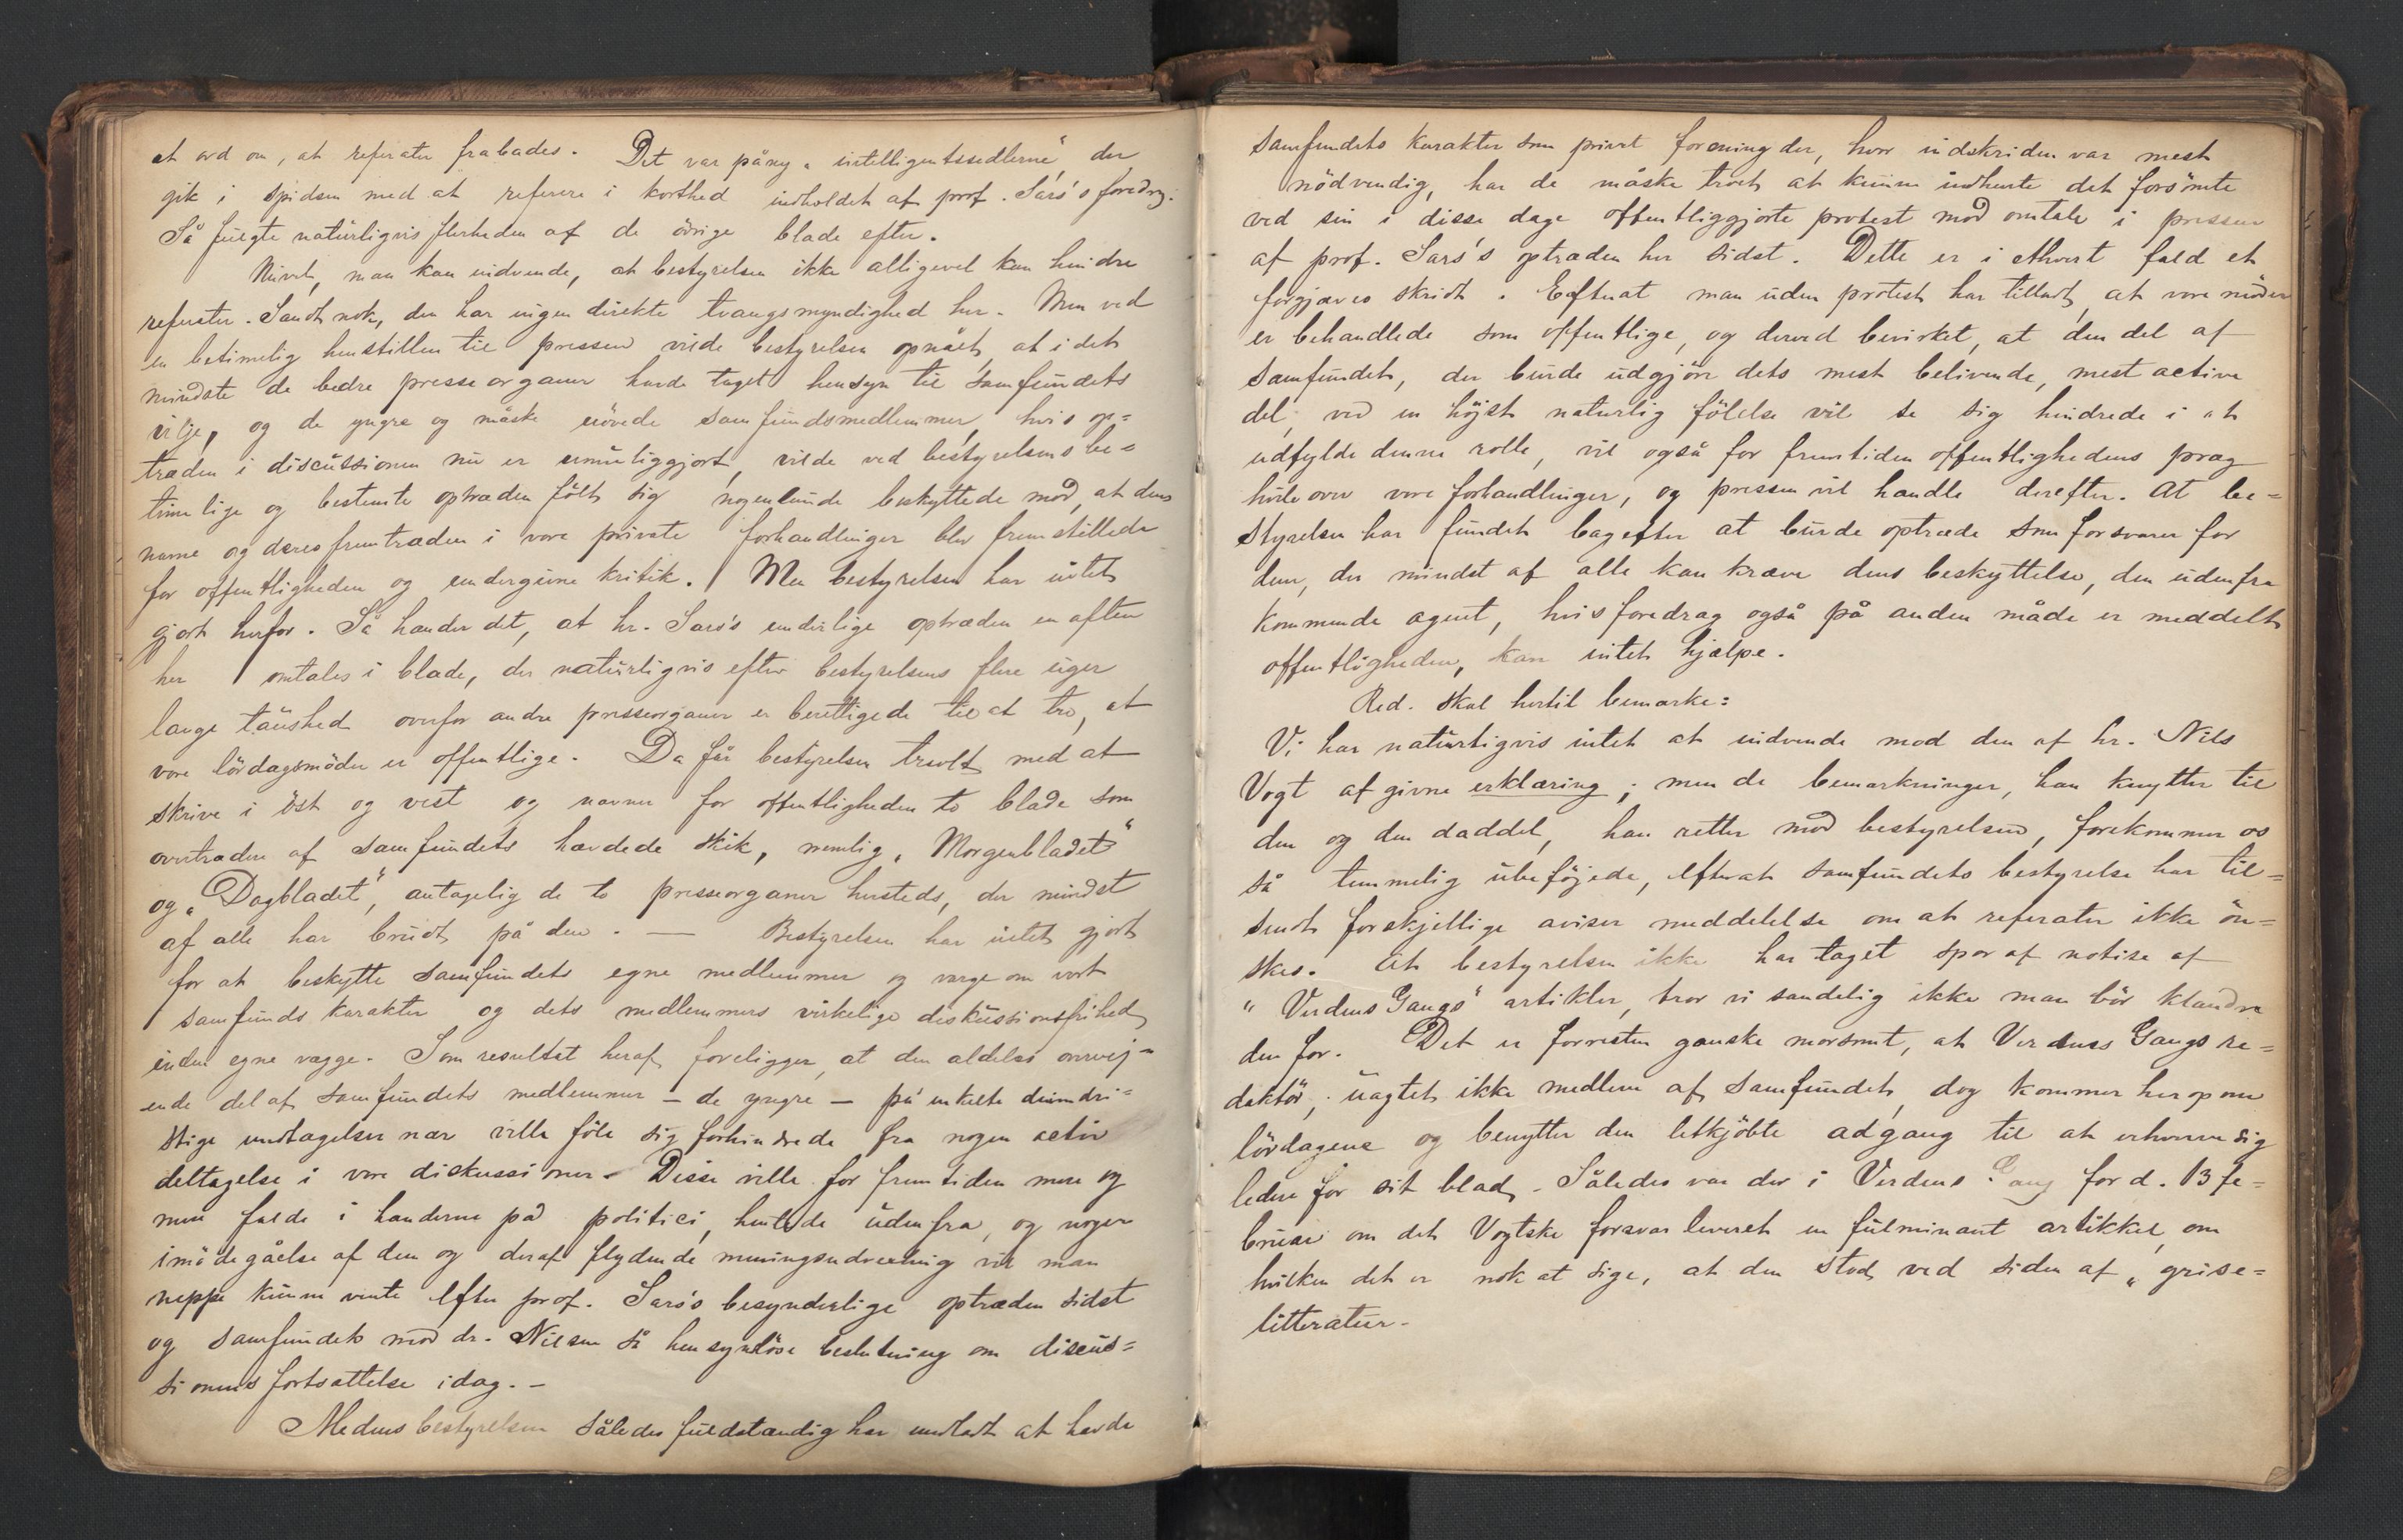 et ord om, at referater frabades. Det var påny „intelligentssedlerne“ der
gik i spidsen med at referere i korthed indholdet af prof. Sars's foredrag.
Så fulgte naturligvis flerheden af de övrige blade efter.
Nuvel, man kan indvende, at bestyrelsen ikke alligevel kan hindre
referater. Sandt nok, den har ingen direkte tvangsmyndighed her. Men ved
en betimelig henstillen til pressen vilde bestyrelsen opnået, at i det
mindste de bedre presseorganer havde taget hensyn til samfundets
vilje, og de yngre og måske uövede samfundsmedlemmer, hvis op=
træden i discussionen nu er umuliggjort, vilde ved bestyrelsens be=
timelige og bestemte optræden fölt sig nogenlunde beskyttede mod, at deres
navne og deres fremtræden i vore private forhandlinger blev fremstillede
for offentligheden og undergivne kritik. Men bestyrelsen har intet
gjort herfor. Så hænder det, at hr. Sars's underlige optræden en aften
her omtales i blade, der naturligvis efter bestyrelsens flere uger
lange taushed overfor andre presseorganer er berettigede til at tro, at
vore lördagsmöder er offentlige. Da får bestyrelsen travlt med at
skrive i öst og vest og nævner for offentligheden to blade som
overtrædere af samfundets hævdede skik, nemlig „Morgenbladet“
og „Dagbladet“, antagelig de to presseorganer hersteds, der mindst
af alle har brudt på den. — Bestyrelsen har intet gjort
for at beskytte samfundets egne medlemmer og værge om vort
samfunds karakter og dets medlemmers virkelige diskussionsfrihed
inden egne vægge. Som resultat heraf foreligger, at den aldeles overvej=
ende del af samfundets medlemmer – de yngre – på enkelte dumdri=
stige undtagelser nær ville föle sig forhindrede fra nogen activ
deltagelse i vore diskussioner. Disse ville for fremtiden mere og
mere falde i hænderne på politici, hentede udenfra, og nogen
imödegåelse af dem og deraf flydende meningsudvexling vil man
neppe kunne vente efter prof. Sars's besynderlige optræden sidst
og samfundets mod dr. Nilsen så hensynslöse beslutning om discus=
sionens fortsættelse idag. –
Medens bestyrelsen således fuldstændig har undladt at hævde
samfundets karakter som privat forening der, hvor indskriden var mest
nödvendig, har de måske troet at kunne indhente det forsömte
ved sin i disse dage offentliggjorte protest mod omtale i pressen
af prof. Sars's optræden her sidst. Dette er i ethvert fald et
forgjæves skridt. Efterat man uden protest har tilladt, at vore möder
er behandlede som offentlige, og derved bevirket, at den del af
samfundet, der burde udgjöre dets mest belivende, mest active
del, ved en höjst naturlig fölelse vil se sig hindrede i at
udfylde denne rolle, vil også for fremtiden offentlighedens præg
hvile over vore forhandlinger, og pressen vil handle derefter. At be=
styrelsen har fundet bagefter at burde optræde som forsvarer for
den, der mindst af alle kan kræve dens beskyttelse, den udenfra
kommende agent, hvis foredrag også på anden måde er meddelt
offentligheden, kan intet hjælpe.
Red. skal hertil bemærke:
Vi har naturligvis intet at indvende mod den af hr. Nils
Vogt afgivne erklæring; men de bemærkninger, han knytter til
den og den daddel, han retter mod bestyrelsen, forekommer os
så temmelig ubeföjede, efterat samfundets bestyrelse har til=
sendt forskjellige aviser meddelelse om at referater ikke ön=
skes. At bestyrelsen ikke har taget spor af notise af
“Verdens Gangs“ artikler, tror vi sandelig ikke man bör klandre
den for. Det er forresten ganske morsomt, at Verdens Gangs re=
daktör, uagtet ikke medlem af samfundet, dog kommer herop om
lördagene og benytter den letkjöbte adgang til at erhverve sig
ledere for sit blad. Således var der i Verdens Gang for d. 13 fe=
bruar om det Vogtske forsvar leveret en fulminant artikkel, om
hvilken det er nok at sige, at den stod ved siden af „grise=
litteratur.